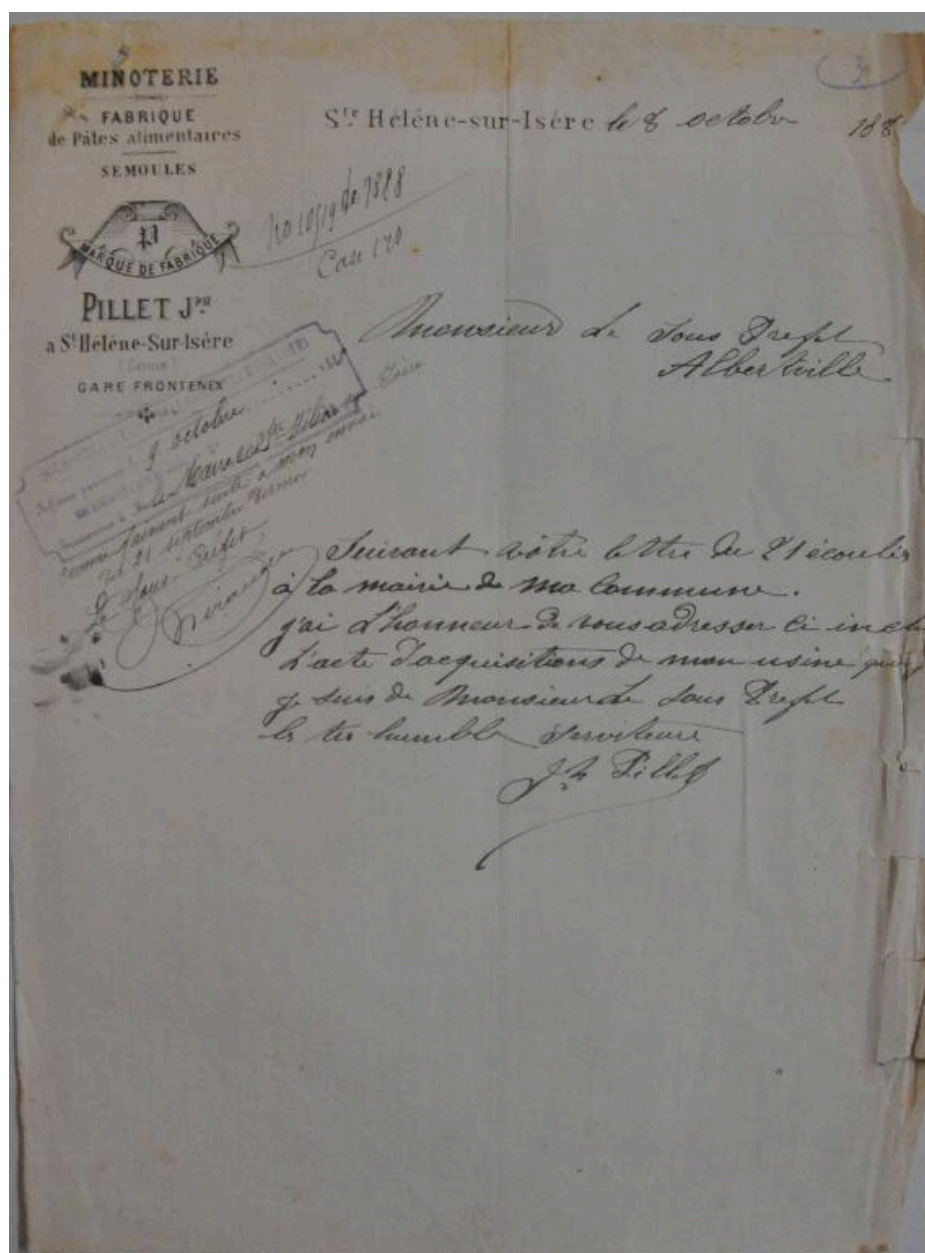 3
MINOTERIE
FABRIQUE
de Pâtes alimentaires
SEMOULES
P
MARQUE DE FABRIQUE
PILLET Jph
a Ste Hélène-Sur-Isère
(Savoie)
GARE FRONTENEX
Ste Héléne-sur-Isére le 8 octobre 188
No 10519 de 1888
Case 170
Monsieur Le Sous Prefet
Albertville
9 octobre
Maire de Ste Hélène sur Isère
comme faisant suite a mon envoi
du 21 septembre dernier
Le Sous-Préfet
Suivant vôtre lettre du 21 écoulés
à la mairie de ma Commune.
j'ai L'honneur de vous adresser Ci in
L'acte d'acquisitions de mon usine
je suis de Monsieur Le Sous Prefet
le tres humble serviteure
Jh Pillet